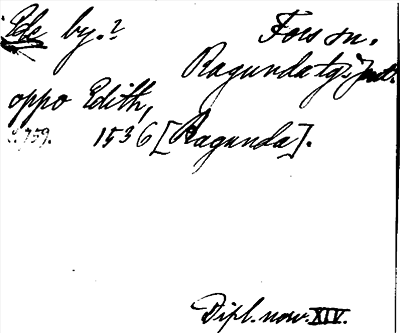 Ede by.? Fors sn.
Ragunda tg. Jmtl.
oppo Edith,
s. 759. 1536 [Ragunda].
Dipl. norv. XIV.